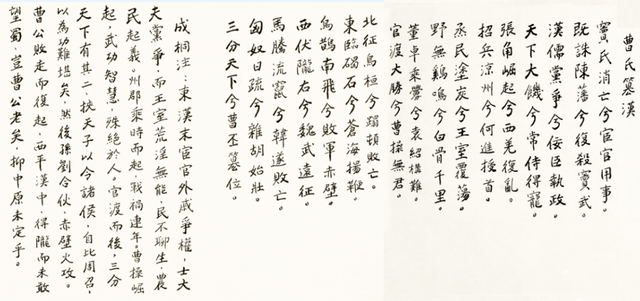 曹氏篡漢
竇氏消亡兮宦官用事。
既誅陳藩兮復殺竇武。
漢儒黨爭兮佞臣執政。
天下大饑兮常侍得寵。
張角崛起兮西羌復亂。
招兵涼州兮何進授首。
烝民塗炭兮王室覆蕩。
野無雞鳴兮白骨千里。
董卓乘釁兮袁紹構難。
官渡大勝兮曹操無君。
北征烏桓兮蹋頓敗亡。
東臨碣石兮蒼海揚鞭。
烏鵲南飛兮敗軍赤壁。
西伏隴右兮魏武遠征。
馬騰流竄兮韓遂敗亡。
匈奴日疏兮雜胡始壯。
三分天下兮曹丕篡位。
成桐注：東漢末宦官外戚爭權，士大
夫黨爭，而王室荒淫無能，民不聊生，農
民起義。州郡乘時而起，戰禍連年。曹操崛
起，武功智慧，殊絕於人。官渡而後，三分
天下有其二，挾天子以令諸侯，自比周召，
以為功難堪矣，然後孫劉合伙，赤壁火攻。
曹公敗走而復起，西平漢中，得隴而未敢
望蜀，豈曹公老矣，抑中原未定乎。